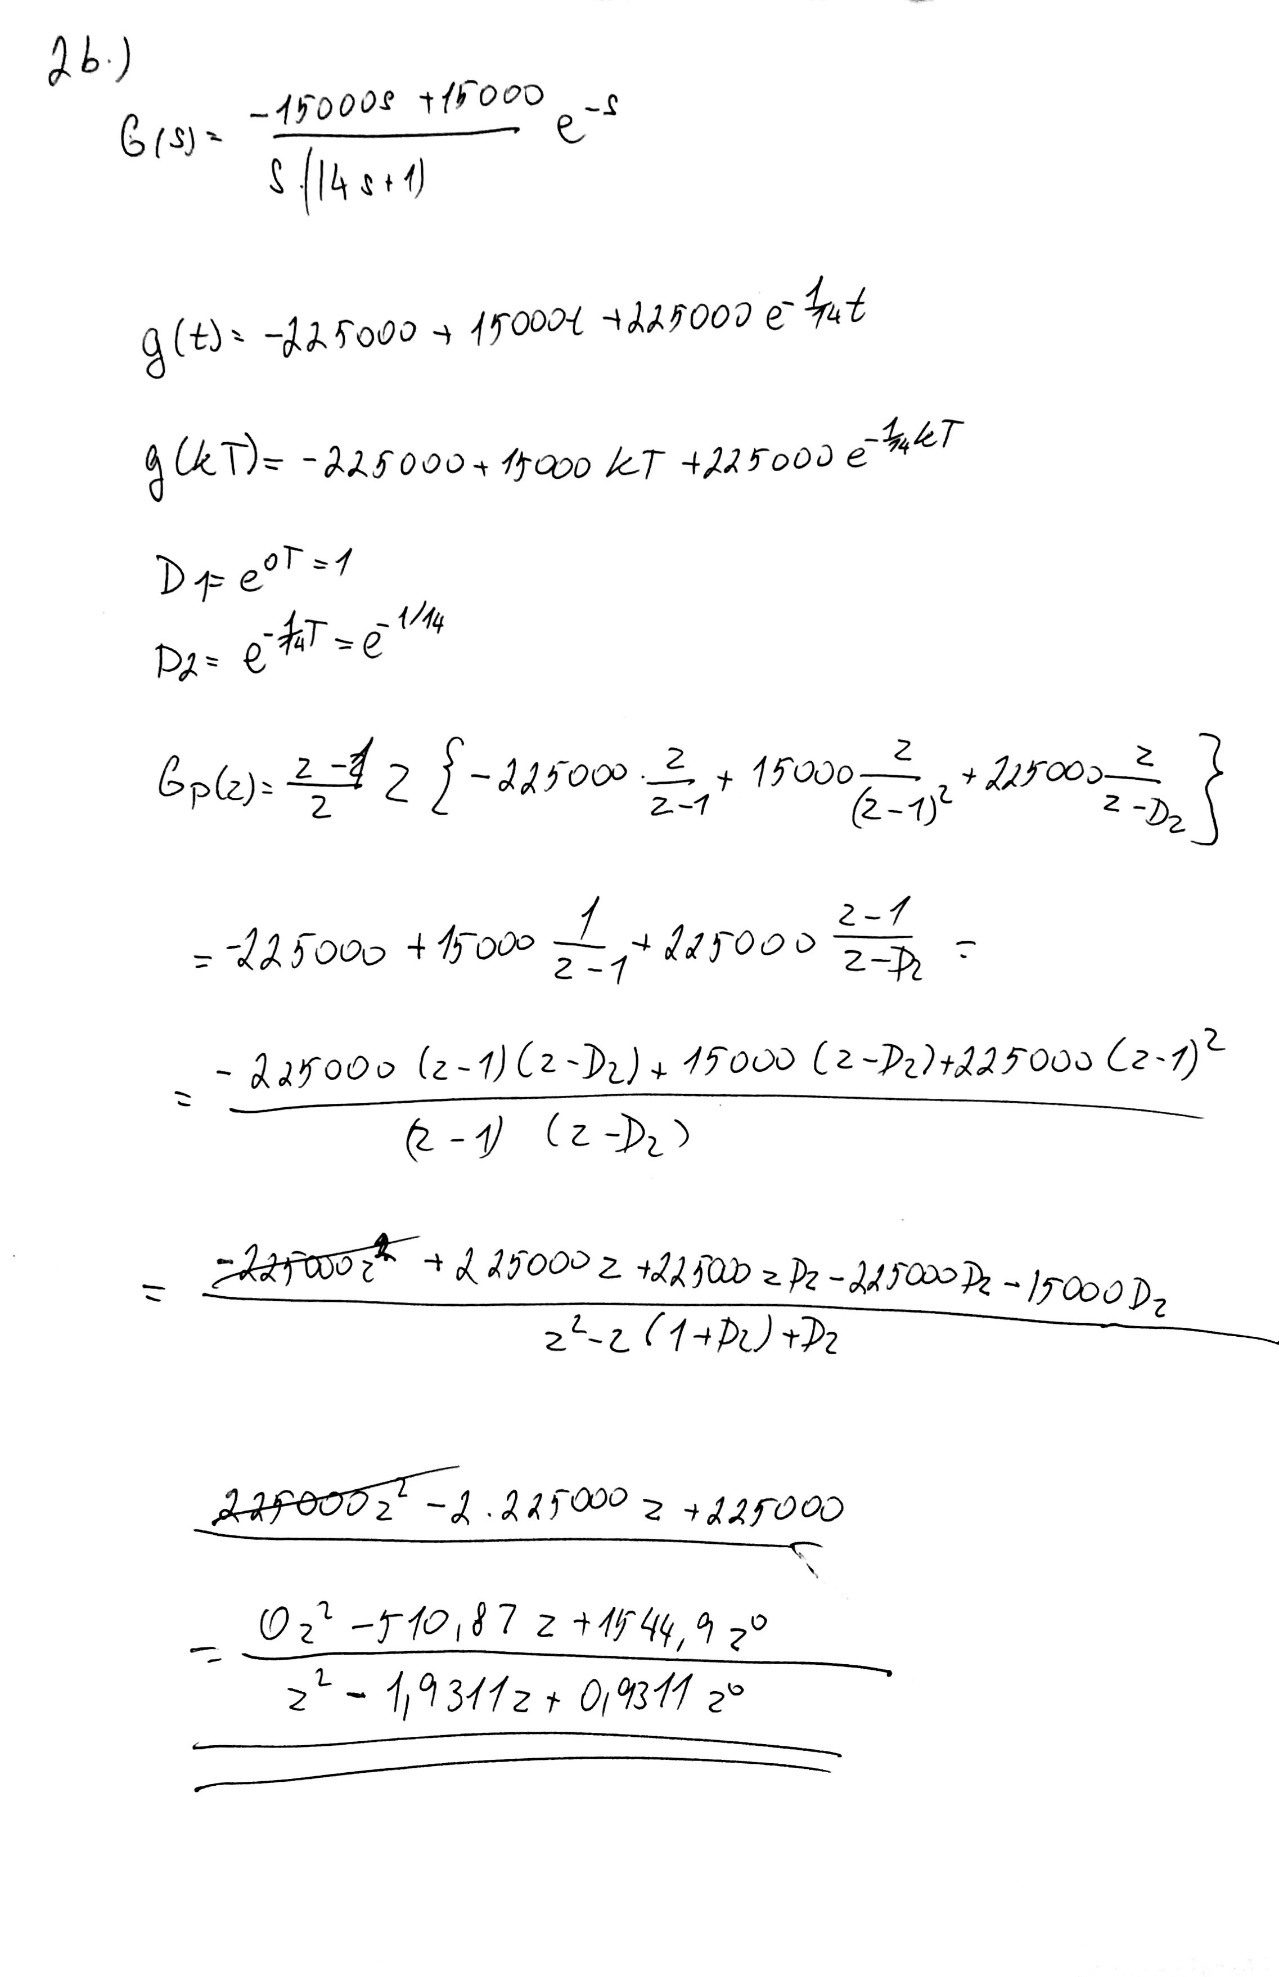 2b.)
G(s) = (-15000s + 15000) / (s.(14s+1)) e^-s
g(t) = -225000 + 15000t + 225000 e^-1/14 t
g(kT) = -225000 + 15000 kT + 225000 e^-1/14 kT
D1 = e^0T = 1
D2 = e^-1/14 T = e^-1/14
Gp(z) = (z-1)/z Z { -225000 . z/(z-1) + 15000 z/(z-1)^2 + 225000 z/(z-D2) }
= -225000 + 15000 1/(z-1) + 225000 (z-1)/(z-D2) =
= (-225000 (z-1)(z-D2) + 15000 (z-D2) + 225000 (z-1)^2) / ((z-1) (z-D2))
= (-225000z^2 + 225000z + 225000 z D2 - 225000 D2 - 15000 D2) / (z^2 - z(1+D2) + D2)
225000z^2 - 2.225000 z + 225000
= (0z^2 - 510,87 z + 1544,9 z^0) / (z^2 - 1,9311z + 0,9311 z^0)